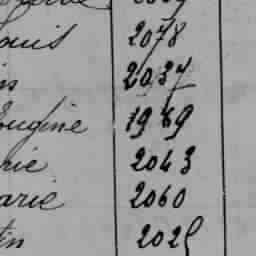 ouis 2078
is 2037
ougine 1969
rie 2043
arie 2060
tin 2025